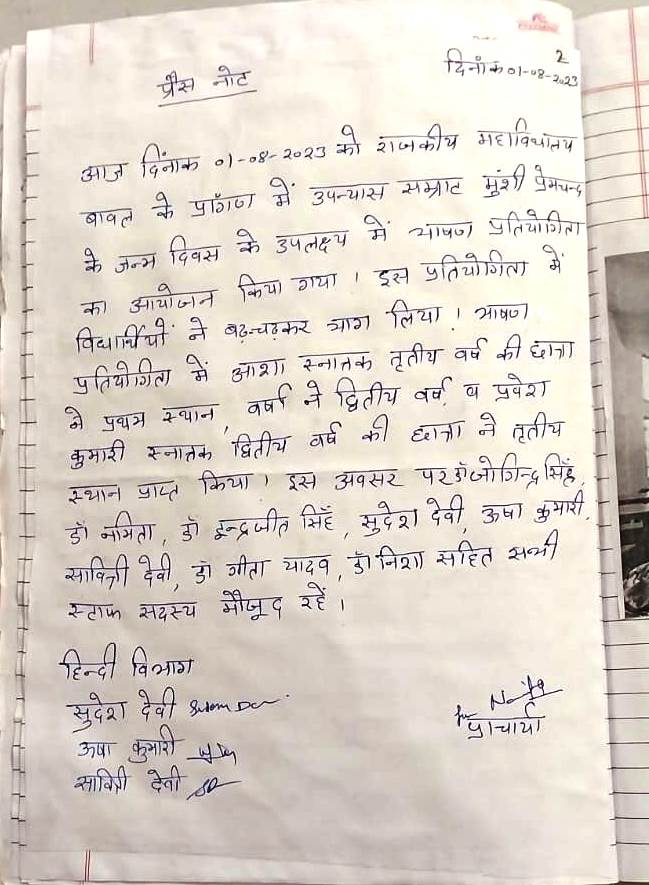 2
दिनाँक 01-08-2023
प्रैस नोट
आज दिनाँक 01-08-2023 को राजकीय महाविद्यालय
बावल के प्राँगण में उपन्यास सम्राट मुंशी प्रेमचन्द
के जन्म दिवस के उपलक्ष्य में भाषण प्रतियोगिता
का आयोजन किया गया । इस प्रतियोगिता में
विद्यार्थियों ने बढ़-चढ़कर भाग लिया । भाषण
प्रतियोगिता में आशा स्नातक तृतीय वर्ष की छात्रा
ने प्रथम स्थान, वर्षा ने द्वितीय वर्ष व प्रवेश
कुमारी स्नातक द्वितीय वर्ष की छात्रा ने तृतीय
स्थान प्राप्त किया । इस अवसर पर डॉ जोगिन्द्र सिंह,
डॉ नमिता, डॉ इन्द्रजीत सिंह, सुदेश देवी, ऊषा कुमारी,
सावित्री देवी, डॉ गीता यादव, डॉ निशा सहित सभी
स्टाफ सदस्य मौजूद रहें ।
हिन्दी विभाग
सुदेश देवी
ऊषा कुमारी
सावित्री देवी
प्राचार्या